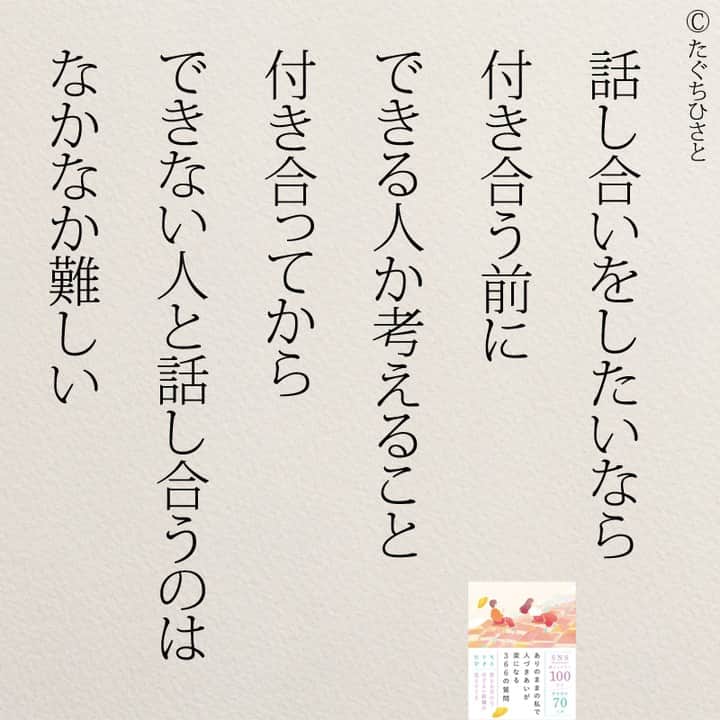 ©たぐちひさと
話し合いをしたいなら
付き合う前に
できる人か考えること
付き合ってから
できない人と話し合うのは
なかなか難しい
ありのままの私で
人づきあいが
楽になる
366の質問
SNS
100
70